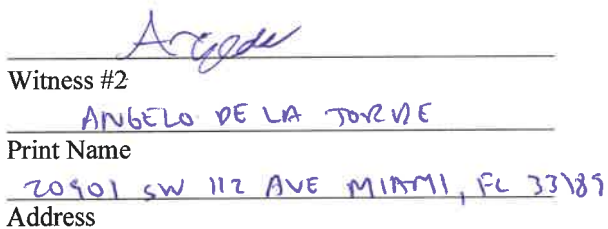 Witness #2
ANGELO DE LA TORRE
Print Name
20901 SW 112 AVE MIAMI, FL 33189
Address